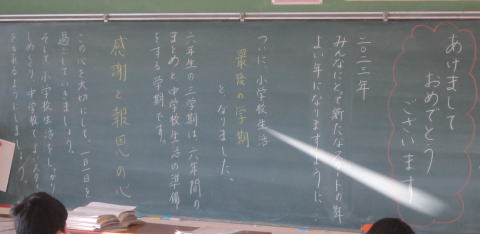 あけまして
おめでとう
ございます
二〇二二年
みんなにとって新たなスタートの年
よい年になりますように…
ついに、小学校生活
最後の学期
となりました。
六年生の三学期は、六年間の
まとめと中学校生活の準備
をする学期です。
感謝と報恩の心
この心を大切にして、一日一日を
過ごしていきましょう。
そして小学校生活をしっかり
しめくくり、中学校でよいスタート